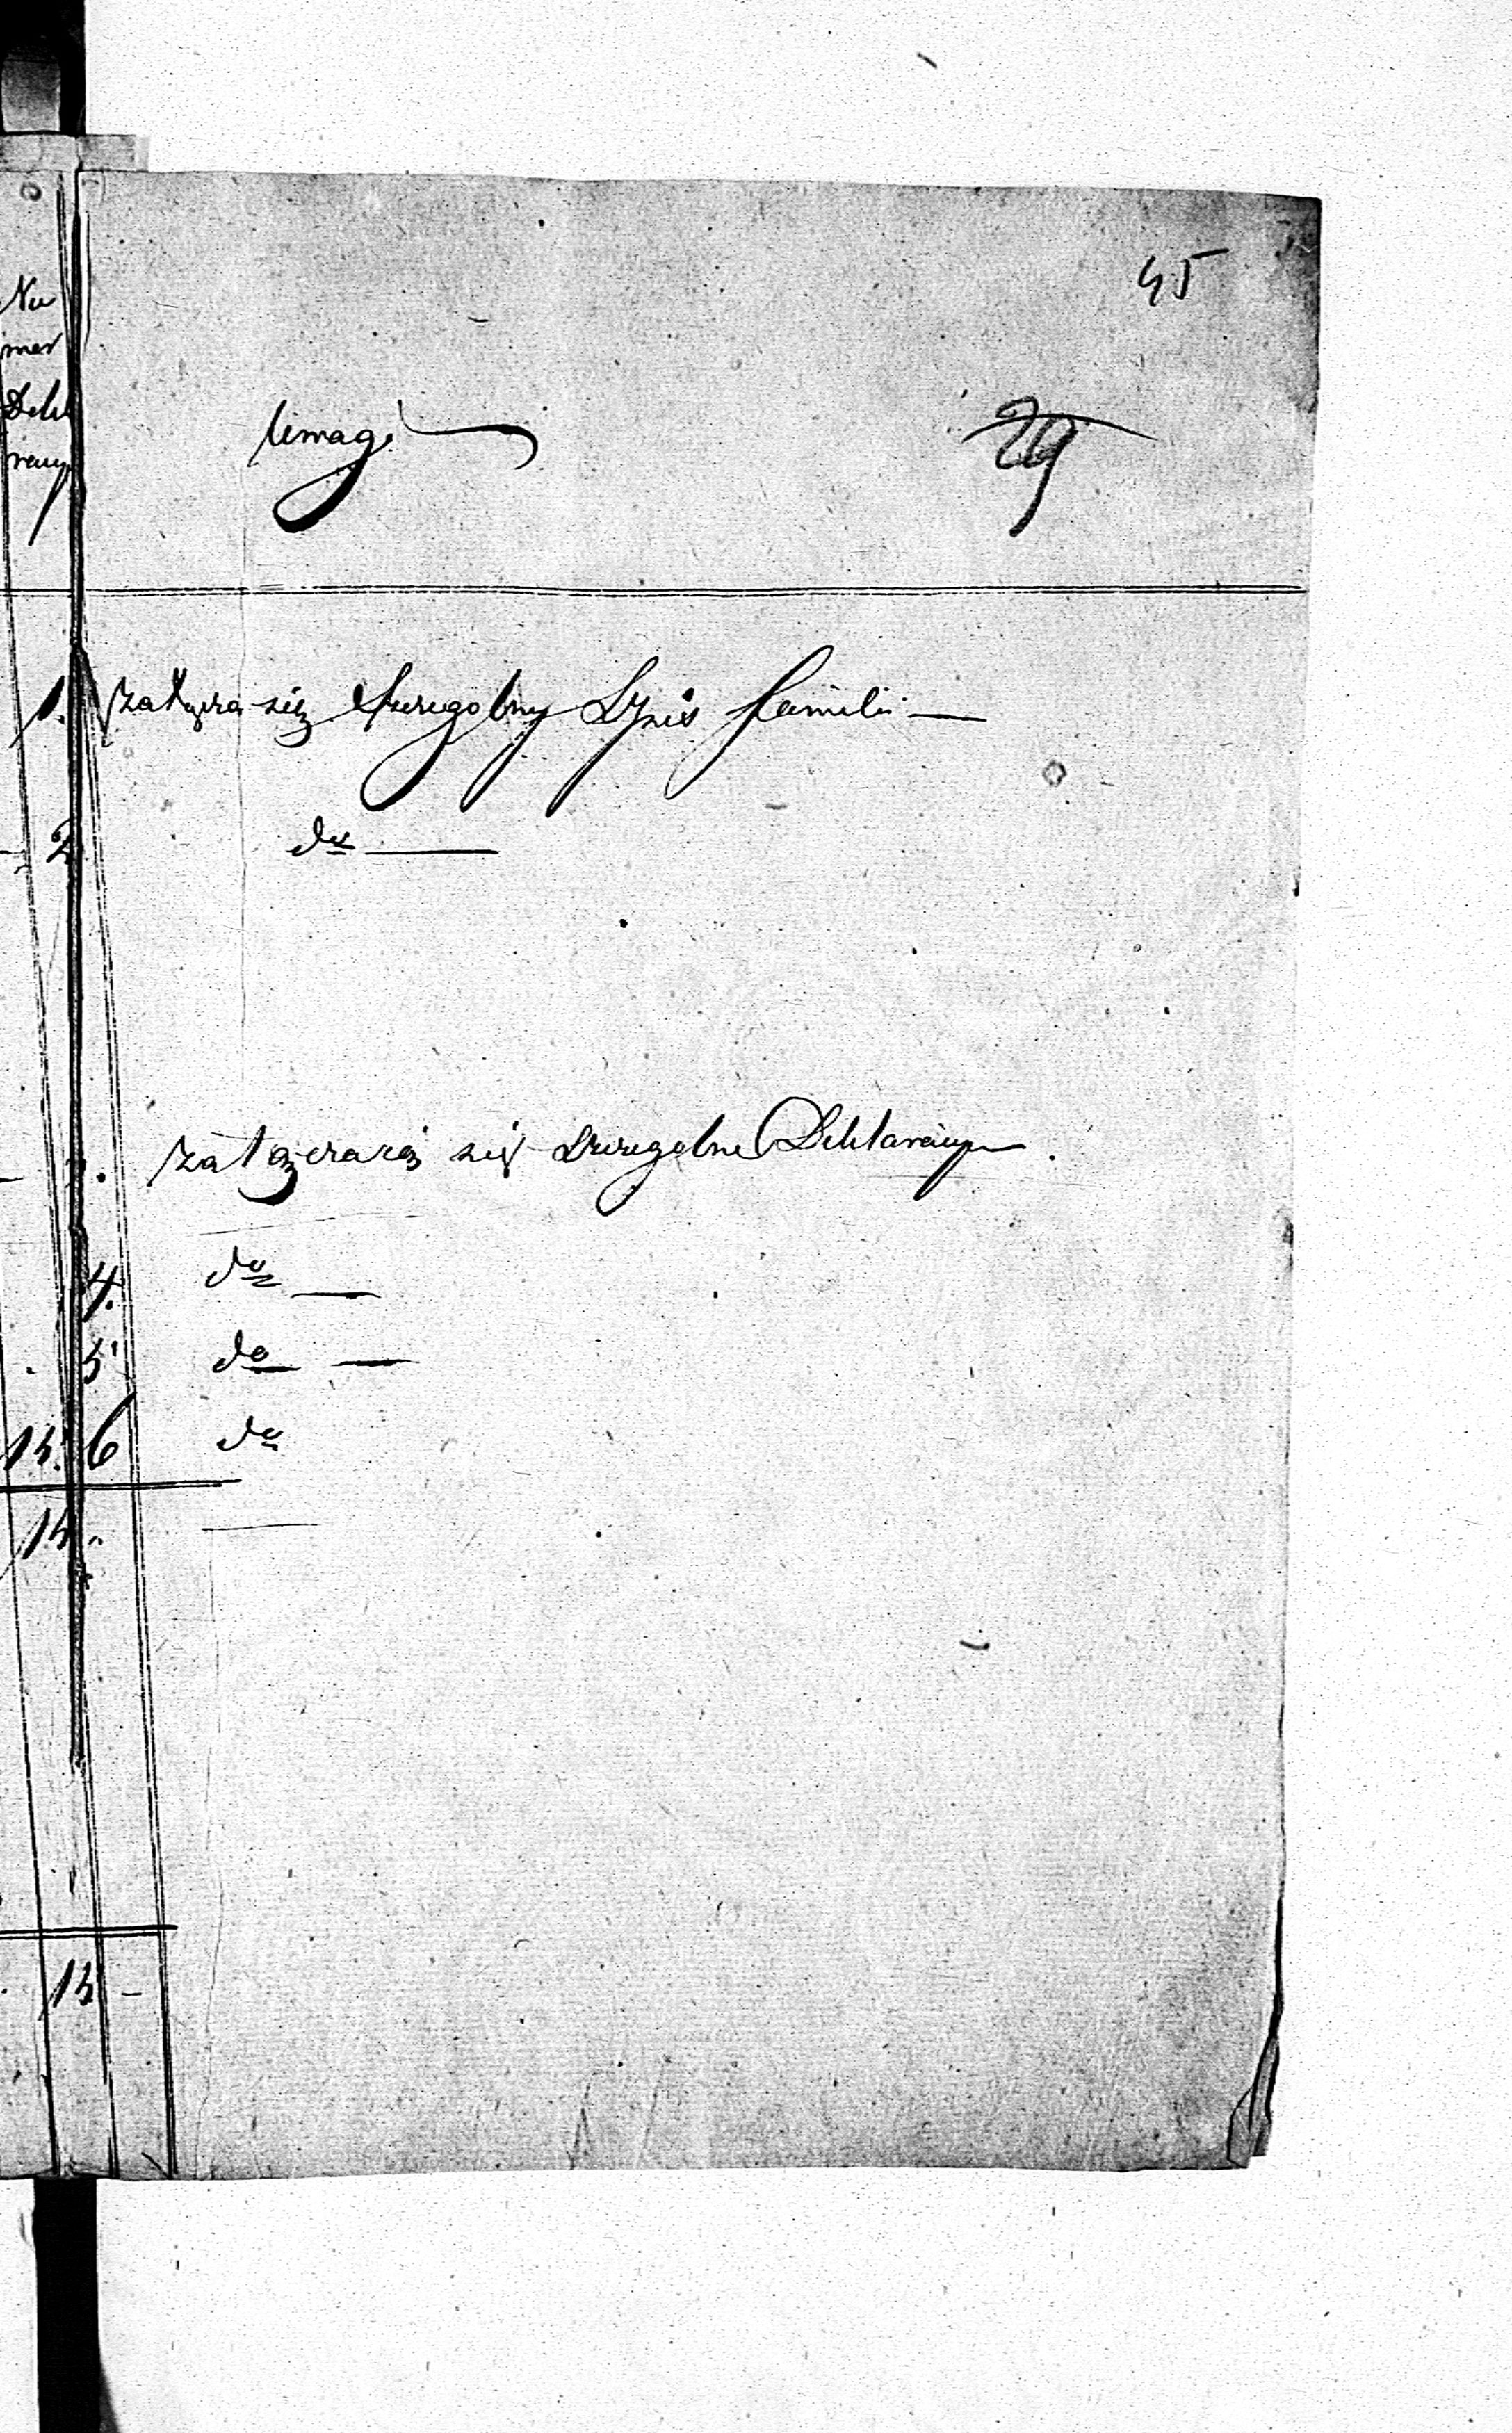 45
Nu
mer
Dekl
racyi
Uwagi
29
1. załącza się szczegolny Spis familii —
2 do —
3. załączaią się szczegolne Deklaracye .
4. do —
5. do —
15. 6 do
15.
15 -